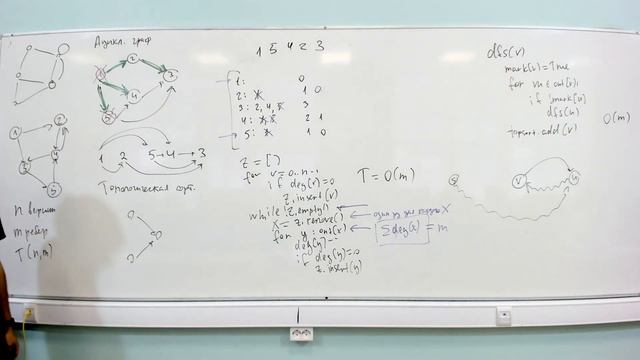 Ацикл. граф
1
2
3
4
5
1 2 5 → 4 → 3
Топологическая сорт.
1
2
3
4
5
n вершин
m рёбер
T(n,m)
1 5 4 2 3
1: 0
2: 1 0
3: 2, 4, 3
4: 2 1
5: 1 0
z = []
for v = 0..n-1
if deg(v)=0
z.insert(v)
while !z.empty()
x = z.remove()
for y : out(x)
deg(y)--
if deg(y)=0
z.insert(y)
T = O(m)
один раз для каждого X
∑ deg(x) = m
dfs(v)
mark[v] = True
for u ∈ out(v):
if !mark[u]
dfs(u)
topsort.add(v)
O(m)
v
u